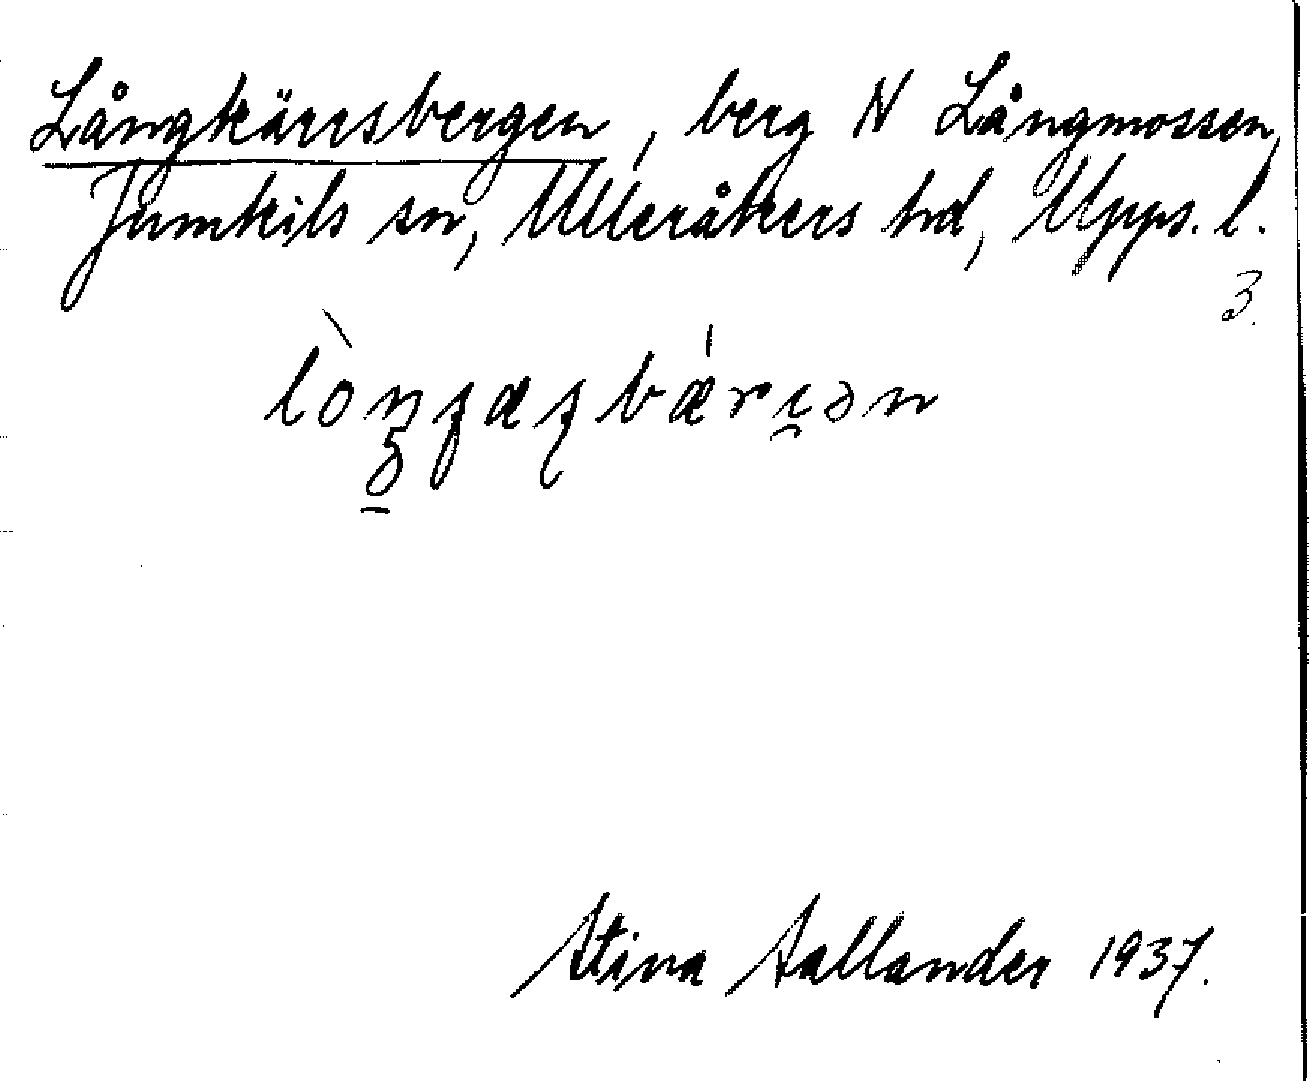 Långkärrsbergen, berg N Långmossen,
Jumkils sn, Ulleråkers hd, Upps. l.
3.
Stina Sallander 1937.